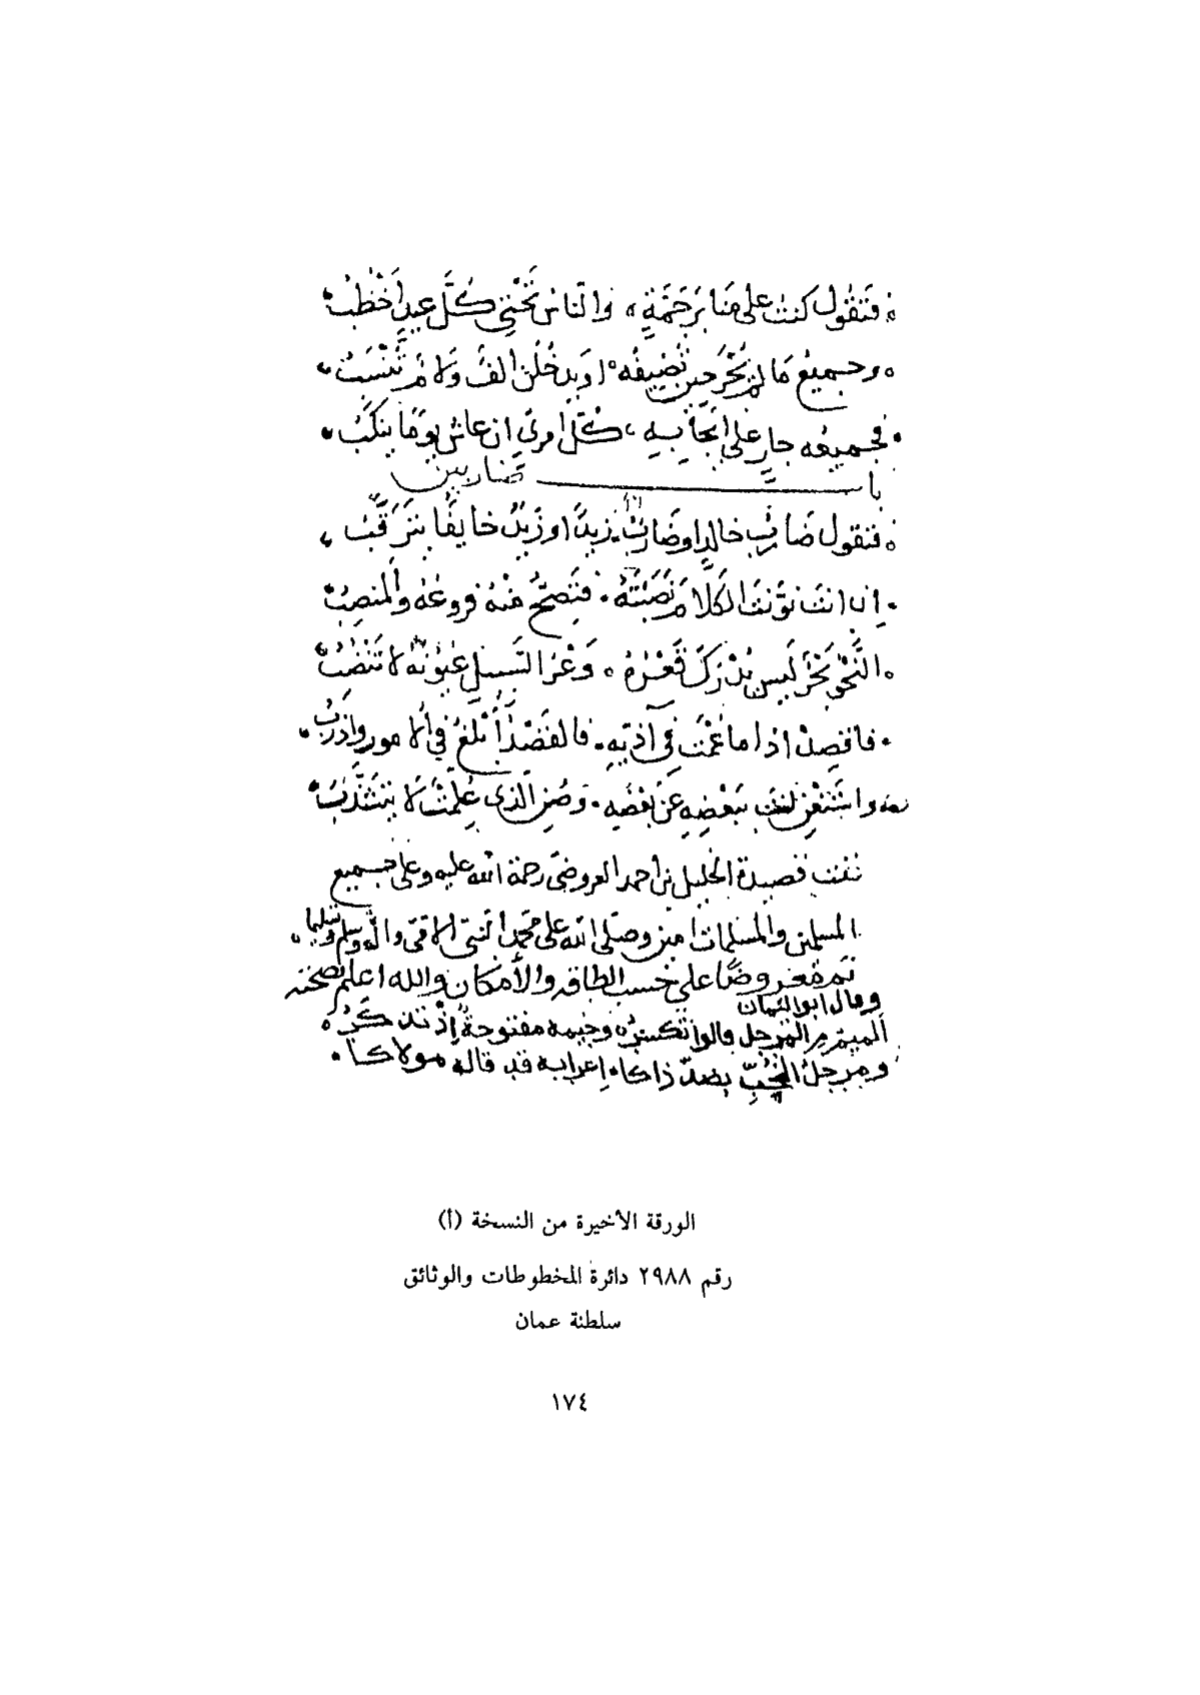 فَتَقُول كنتُ على مَنابرَ جَمَّةٍ والنّاسُ تَخْتي كُلَّ عيدٍ أخْطُبُ
وجميعُ مَا لمْ يَجْرِ حينَ تُضِيفُه او يدخُلَن الفٌ وَلامٌ تُنْسَبُ
فجميعه جارٍ على اجَابِه كُلّ امرئٍ ان عاش يومًا ينكَبُ
باب ضاربين
فتقول ضَاربُ خالدٍ او ضَاربٌ زيدًا وزَيدٌ خايفًا يَتَرَقَّبُ
إن انتَ نوّنتَ الكَلامَ نَصَبْتَهُ فَتَصِحُّ مِنْهُ فروعُهُ والمنصِبُ
النَّحْوُ بَحْرٌ لَيسَ يُدْرَكُ قَعْرُهُ وَعْرُ السَّبيلِ عُيُونُهُ لا تَنْضُبُ
فاقصِدْ اذا ما عُمْتَ في آذيّه فالقَصْدُ أبْلَغُ في الامور واذرَبُ
واسْتَغْنِ انتَ ببَعْضِهِ عن بَعْضِهِ وَصُنِ الّذي عُلِّمْتَ لا يَتَشَذَّبُ
تمت قصيدة الخليل بن أحمد العروضي رحمة الله عليه وعلى جميع
المسلمين والمسلمات امين وصلى الله على محمد النبي الامّيّ واله وسلم تسليما
تم معروضًا على حسب الطاقه والأمكان والله اعلم بصحته
وقال ابو النعمان
الميم من المرجل قالوا تكسرُه وجيمه مفتوحة إذ تذكرُه
ومرجلُ الحُبِّ بضدّ ذاكا إعرابه قد قاله مولاكا
الورقة الأخيرة من النسخة (أ)
رقم ٢٩٨٨ دائرة المخطوطات والوثائق
سلطنة عمان
١٧٤